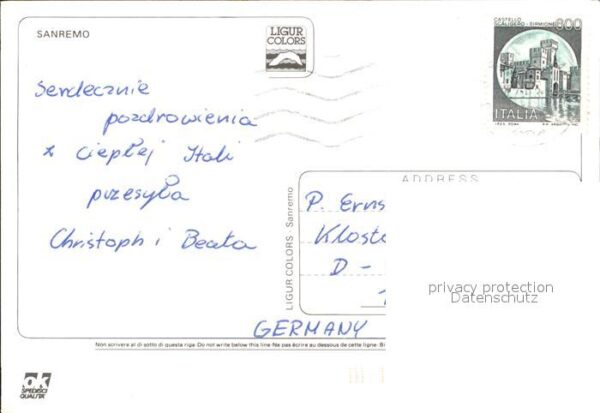 SANREMO
LIGUR
COLORS
CASTELLO
SCALIGERO - SIRMIONE
800
ITALIA
Serdecznie
pozdrowienia
z ciepłej Itali
przesyła
Christoph i Beata
LIGUR COLORS Sanremo
ADDRESS
P. Erns
Kloste
D -
GERMANY
privacy protection
Datenschutz
Non scrivere al di sotto di questa riga. Do not write below this line - Ne pas écrire au dessous de cette ligne.
ok
SPEDISCI
QUALITA'